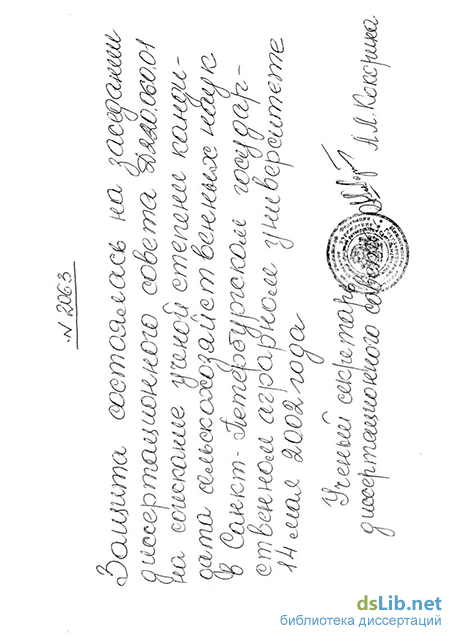 N 2063
Защита состоялась на заседании
диссертационного совета Д220.060.01
на соискание ученой степени канди-
дата сельскохозяйственных наук
в Санкт-Петербургском государ-
ственном аграрном университете
14 мая 2002 года
Ученый секретарь
диссертационного совета А.М. Кокорина
dsLib.net
библиотека диссертаций